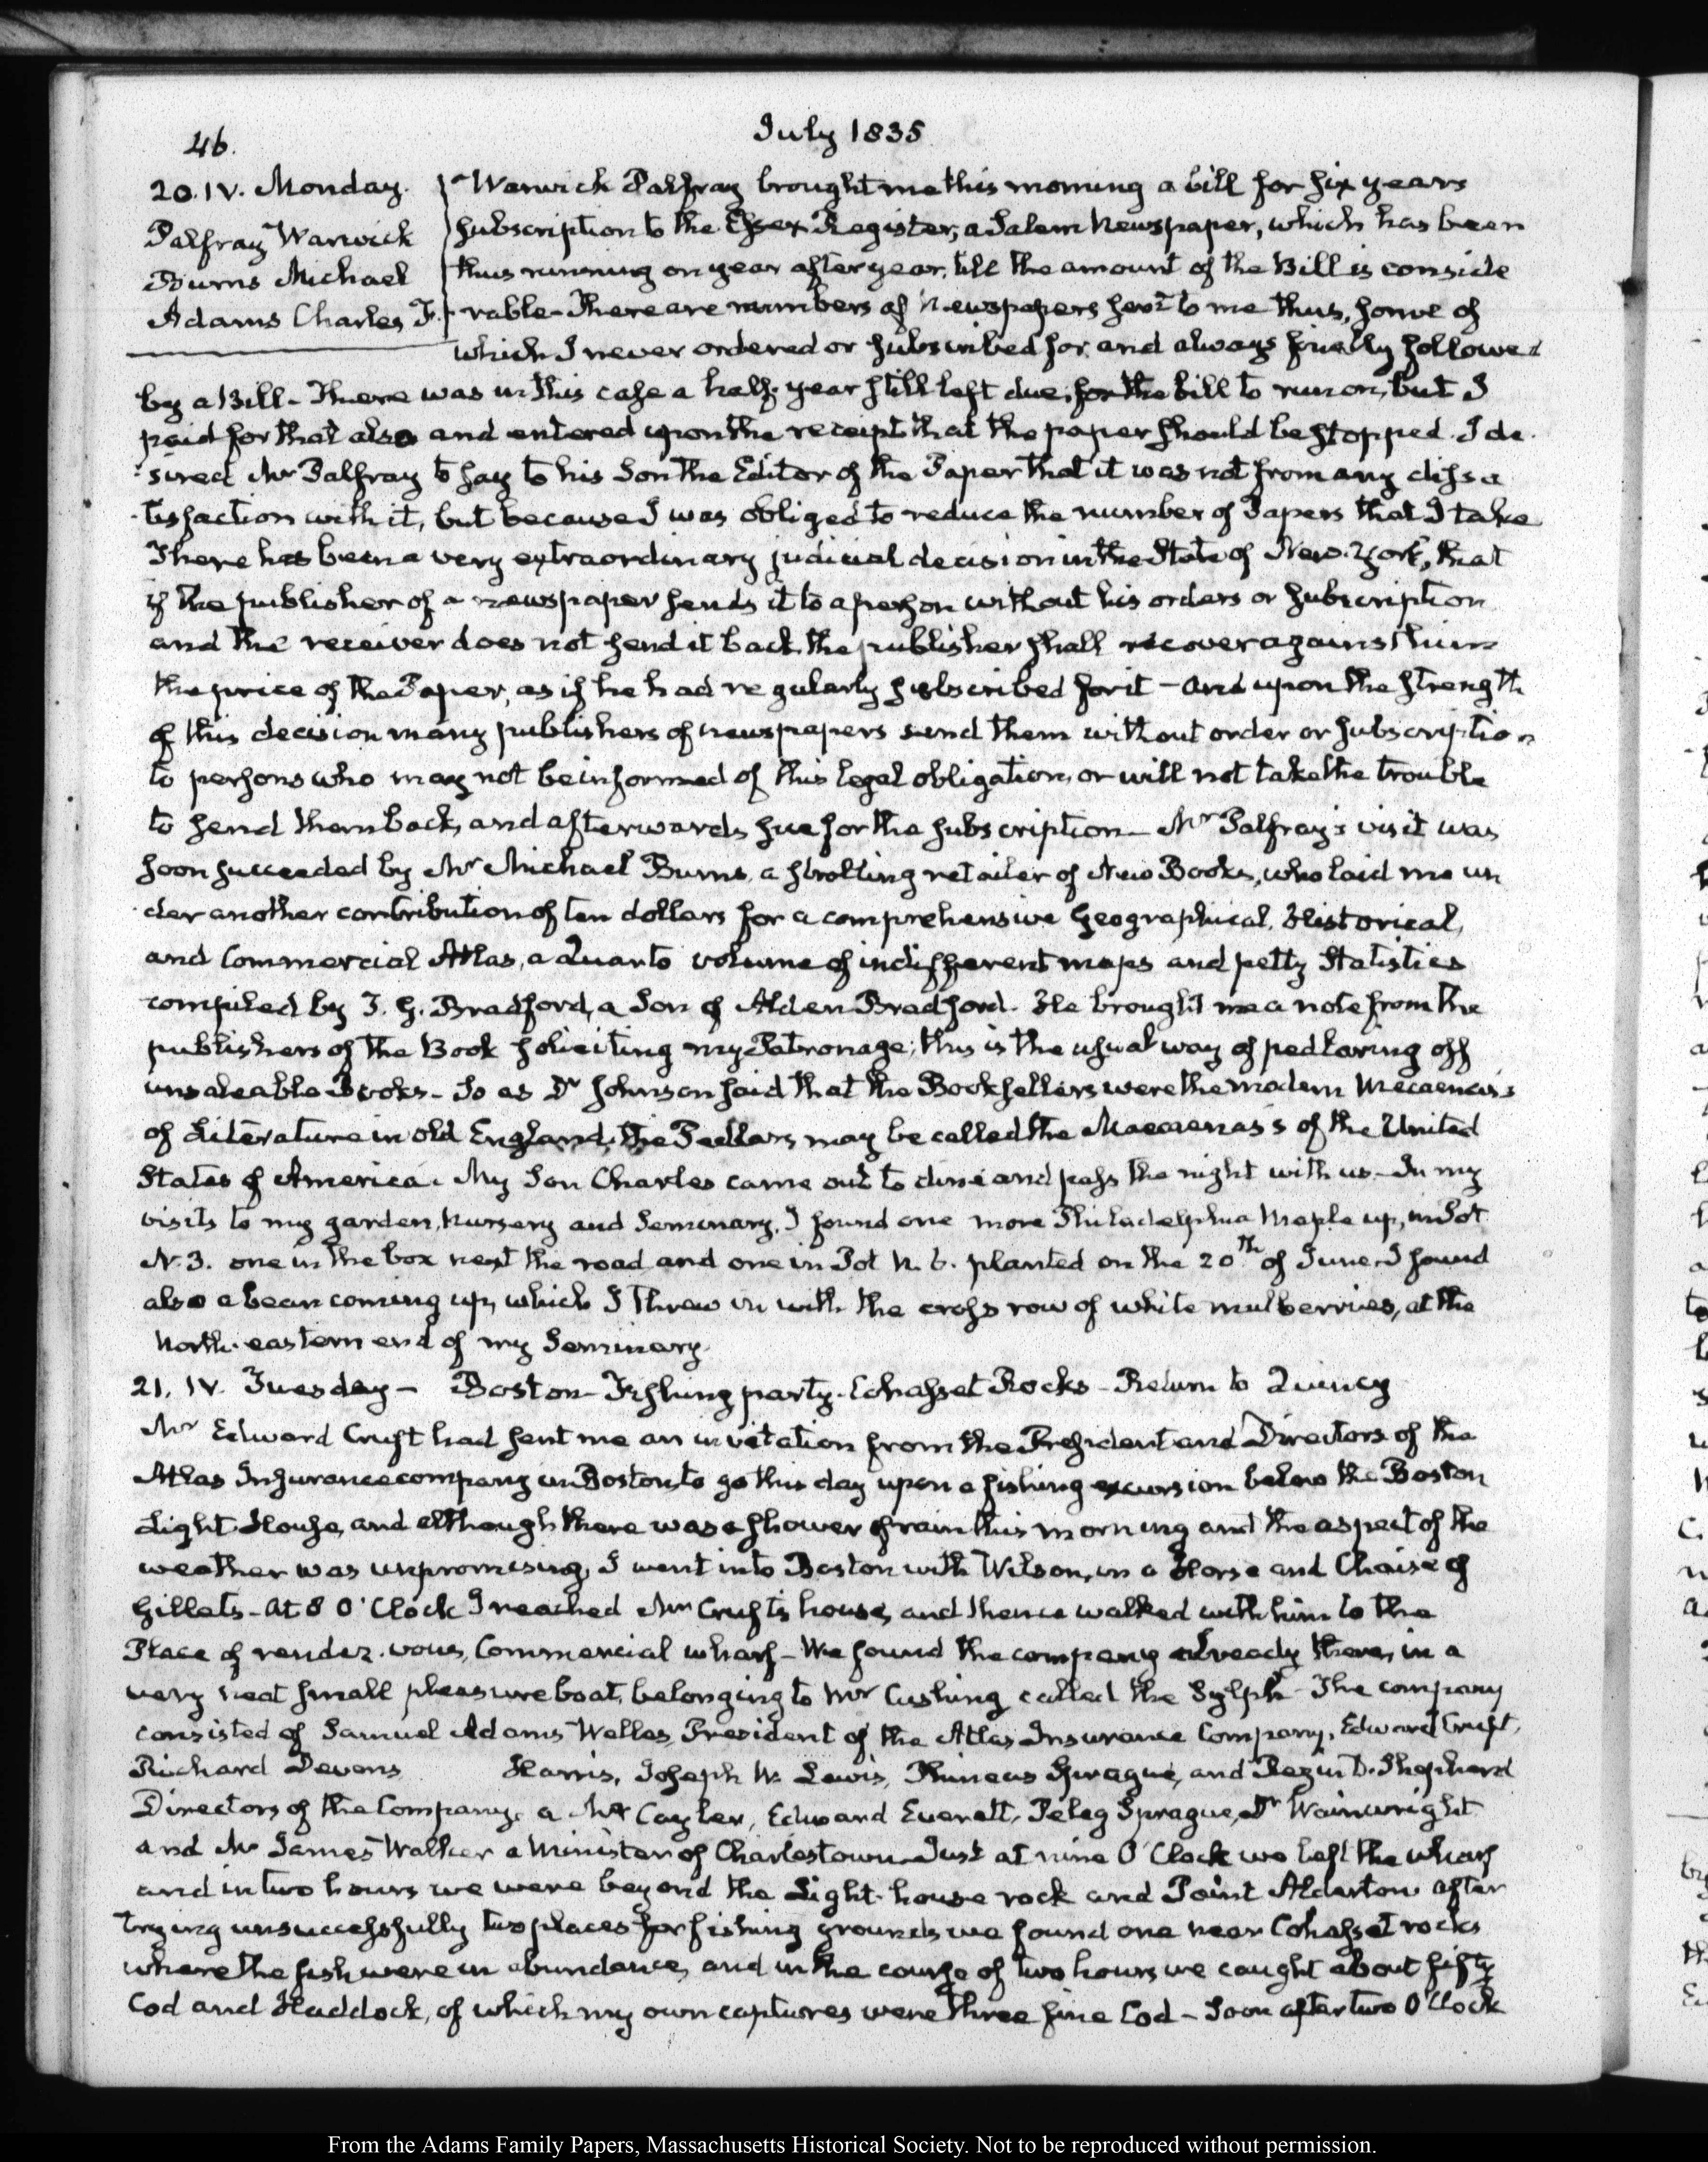 46.
July 1835
20. IV. Monday.
Palfray Warwick
Burns Michael
Adams Charles F.
Warwick Palfray brought me this morning a bill for six years
subscription to the Essex Register, a Salem Newspaper, which has been
thus running on year after year, till the amount of the Bill is conside
rable - There are numbers of Newspapers sent to me thus, some of
which I never ordered or subscribed for, and always finally followed
by a Bill - There was in this case a half-year still left due, for the bill to run on, but I
paid for that also and entered upon the receipt that the paper should be stopped. I de-
-sired Mr Palfray to say to his Son the Editor of the Paper that it was not from any dissa
-tisfaction with it, but because I was obliged to reduce the number of Papers that I take
There has been a very extraordinary judicial decision in the State of New-York, that
if the publisher of a newspaper sends it to a person without his orders or subscription
and the receiver does not send it back, the publisher shall recover against him
the price of the Paper, as if he had regularly subscribed for it - and upon the strength
of this decision many publishers of newspapers send them without order or subscription
to persons who may not be informed of this legal obligation, or will not take the trouble
to send them back, and afterwards sue for the subscription - Mr Palfray's visit was
soon succeeded by Mr Michael Burns, a strolling retailer of New Books, who laid me un
-der another contribution of ten dollars for a comprehensive Geographical, Historical,
and Commercial Atlas, a Quarto volume of indifferent maps and petty Statistics
compiled by T. G. Bradford, a Son of Alden Bradford. He brought me a note from the
publishers of the Book soliciting my Patronage; this is the usual way of pedlaring off
unsaleable Books - So as Dr Johnson said that the Booksellers were the modern Mecaenas's
of Literature in old England, the Pedlars may be called the Maecenas's of the United
States of America. My Son Charles came out to dine and pass the night with us - In my
visits to my garden, Nursery and Seminary, I found one more Philadelphia Maple up, in Pot
N. 3. one in the box next the road and one in Pot N. 6. planted on the 20th of June. I found
also a bean coming up, which I threw in with the cross row of white mulberries, at the
North-eastern end of my Seminary.
21. IV. Tuesday - Boston - Fishing party. Cohasset Rocks - Return to Quincy
Mr Edward Cruft had sent me an invitation from the President and Directors of the
Atlas Insurance company in Boston, to go this day upon a fishing excursion below the Boston
Light House, and although there was a shower of rain this morning and the aspect of the
weather was unpromising, I went into Boston with Wilson, in a Horse and Chaise of
Gillets - At 8 O'Clock I reached Mr Cruft's house, and thence walked with him to the
Place of rendez-vous, Commercial wharf - We found the company already there, in a
very neat small pleasure boat, belonging to Mr Cushing called the Sylph - The company
consisted of Samuel Adams Welles, President of the Atlas Insurance Company, Edward Cruft,
Richard Devens Harris, Joseph W. Lewis, Phineas Sprague, and Rezin D. Shepherd
Directors of the Company, a Mr Edward Everett, Peleg Sprague, Dr Wainwright
and Mr James Walker a Minister of Charlestown - Just at nine O'Clock we left the wharf
and in two hours we were beyond the Light-house rock and Point Alderton after
trying unsuccessfully two places for fishing grounds, we found one near Cohasset rocks
where the fish were in abundance, and in the course of two hours, we caught about fifty
Cod and Haddock, of which my own captures were three fine Cod - Soon after two O'Clock
From the Adams Family Papers, Massachusetts Historical Society. Not to be reproduced without permission.